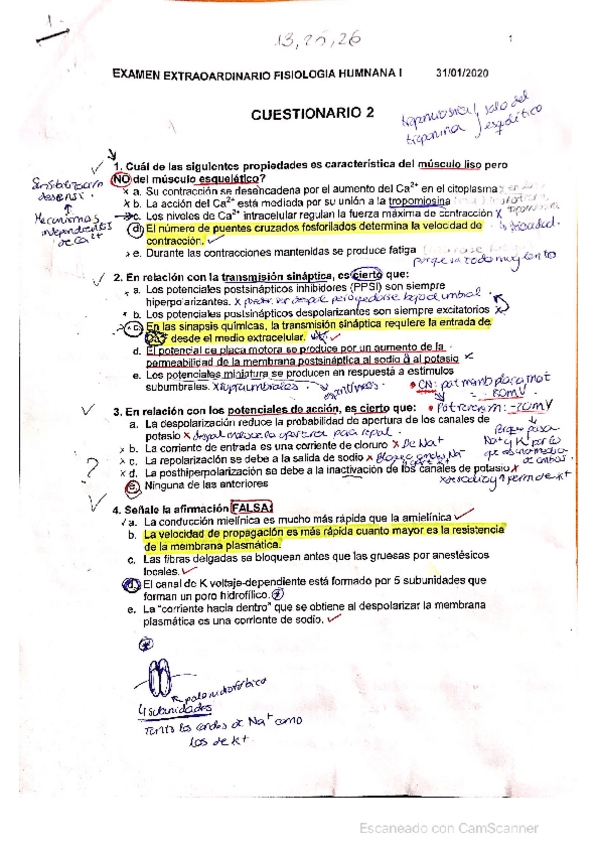 1.
13, 25, 26
EXAMEN EXTRAORDINARIO FISIOLOGIA HUMNANA I 31/01/2020
CUESTIONARIO 2
tropomiosina
troponina
solo del
esquelético
1. Cuál de las siguientes propiedades es característica del músculo liso pero
NO del músculo esquelético?
a. Su contracción se desencadena por el aumento del Ca2+ en el citoplasma
b. La acción del Ca2+ está mediada por su unión a la tropomiosina
c. Los niveles de Ca2+ intracelular regulan la fuerza máxima de contracción x
d. El número de puentes cruzados fosforilados determina la velocidad de
contracción.
e. Durante las contracciones mantenidas se produce fatiga
Mecanismos
independientes
de Ca2+
2. En relación con la transmisión sináptica, es cierto que:
a. Los potenciales postsinápticos inhibidores (PPSI) son siempre
hiperpolarizantes.
b. Los potenciales postsinápticos despolarizantes son siempre excitatorios x
c. En las sinapsis químicas, la transmisión sináptica requiere la entrada de
Ca2+ desde el medio extracelular.
d. El potencial de placa motora se produce por un aumento de la
permeabilidad de la membrana postsináptica al sodio o al potasio x
e. Los potenciales miniatura se producen en respuesta a estímulos
subumbrales.
3. En relación con los potenciales de acción, es cierto que:
• Pot reversm: -70mV
a. La despolarización reduce la probabilidad de apertura de los canales de
potasio x
b. La corriente de entrada es una corriente de cloruro x De Na+
c. La repolarización se debe a la salida de sodio x
d. La posthiperpolarización se debe a la inactivación de los canales de potasio x
e. Ninguna de las anteriores
?
4. Señale la afirmación FALSA:
a. La conducción mielínica es mucho más rápida que la amielínica
b. La velocidad de propagación es más rápida cuanto mayor es la resistencia
de la membrana plasmática.
c. Las fibras delgadas se bloquean antes que las gruesas por anestésicos
locales.
d. El canal de K voltaje-dependiente está formado por 5 subunidades que
forman un poro hidrofílico.
e. La "corriente hacia dentro" que se obtiene al despolarizar la membrana
plasmática es una corriente de sodio.
4 subunidades
Tanto los canales de Na+ como
los de K+
Escaneado con CamScanner